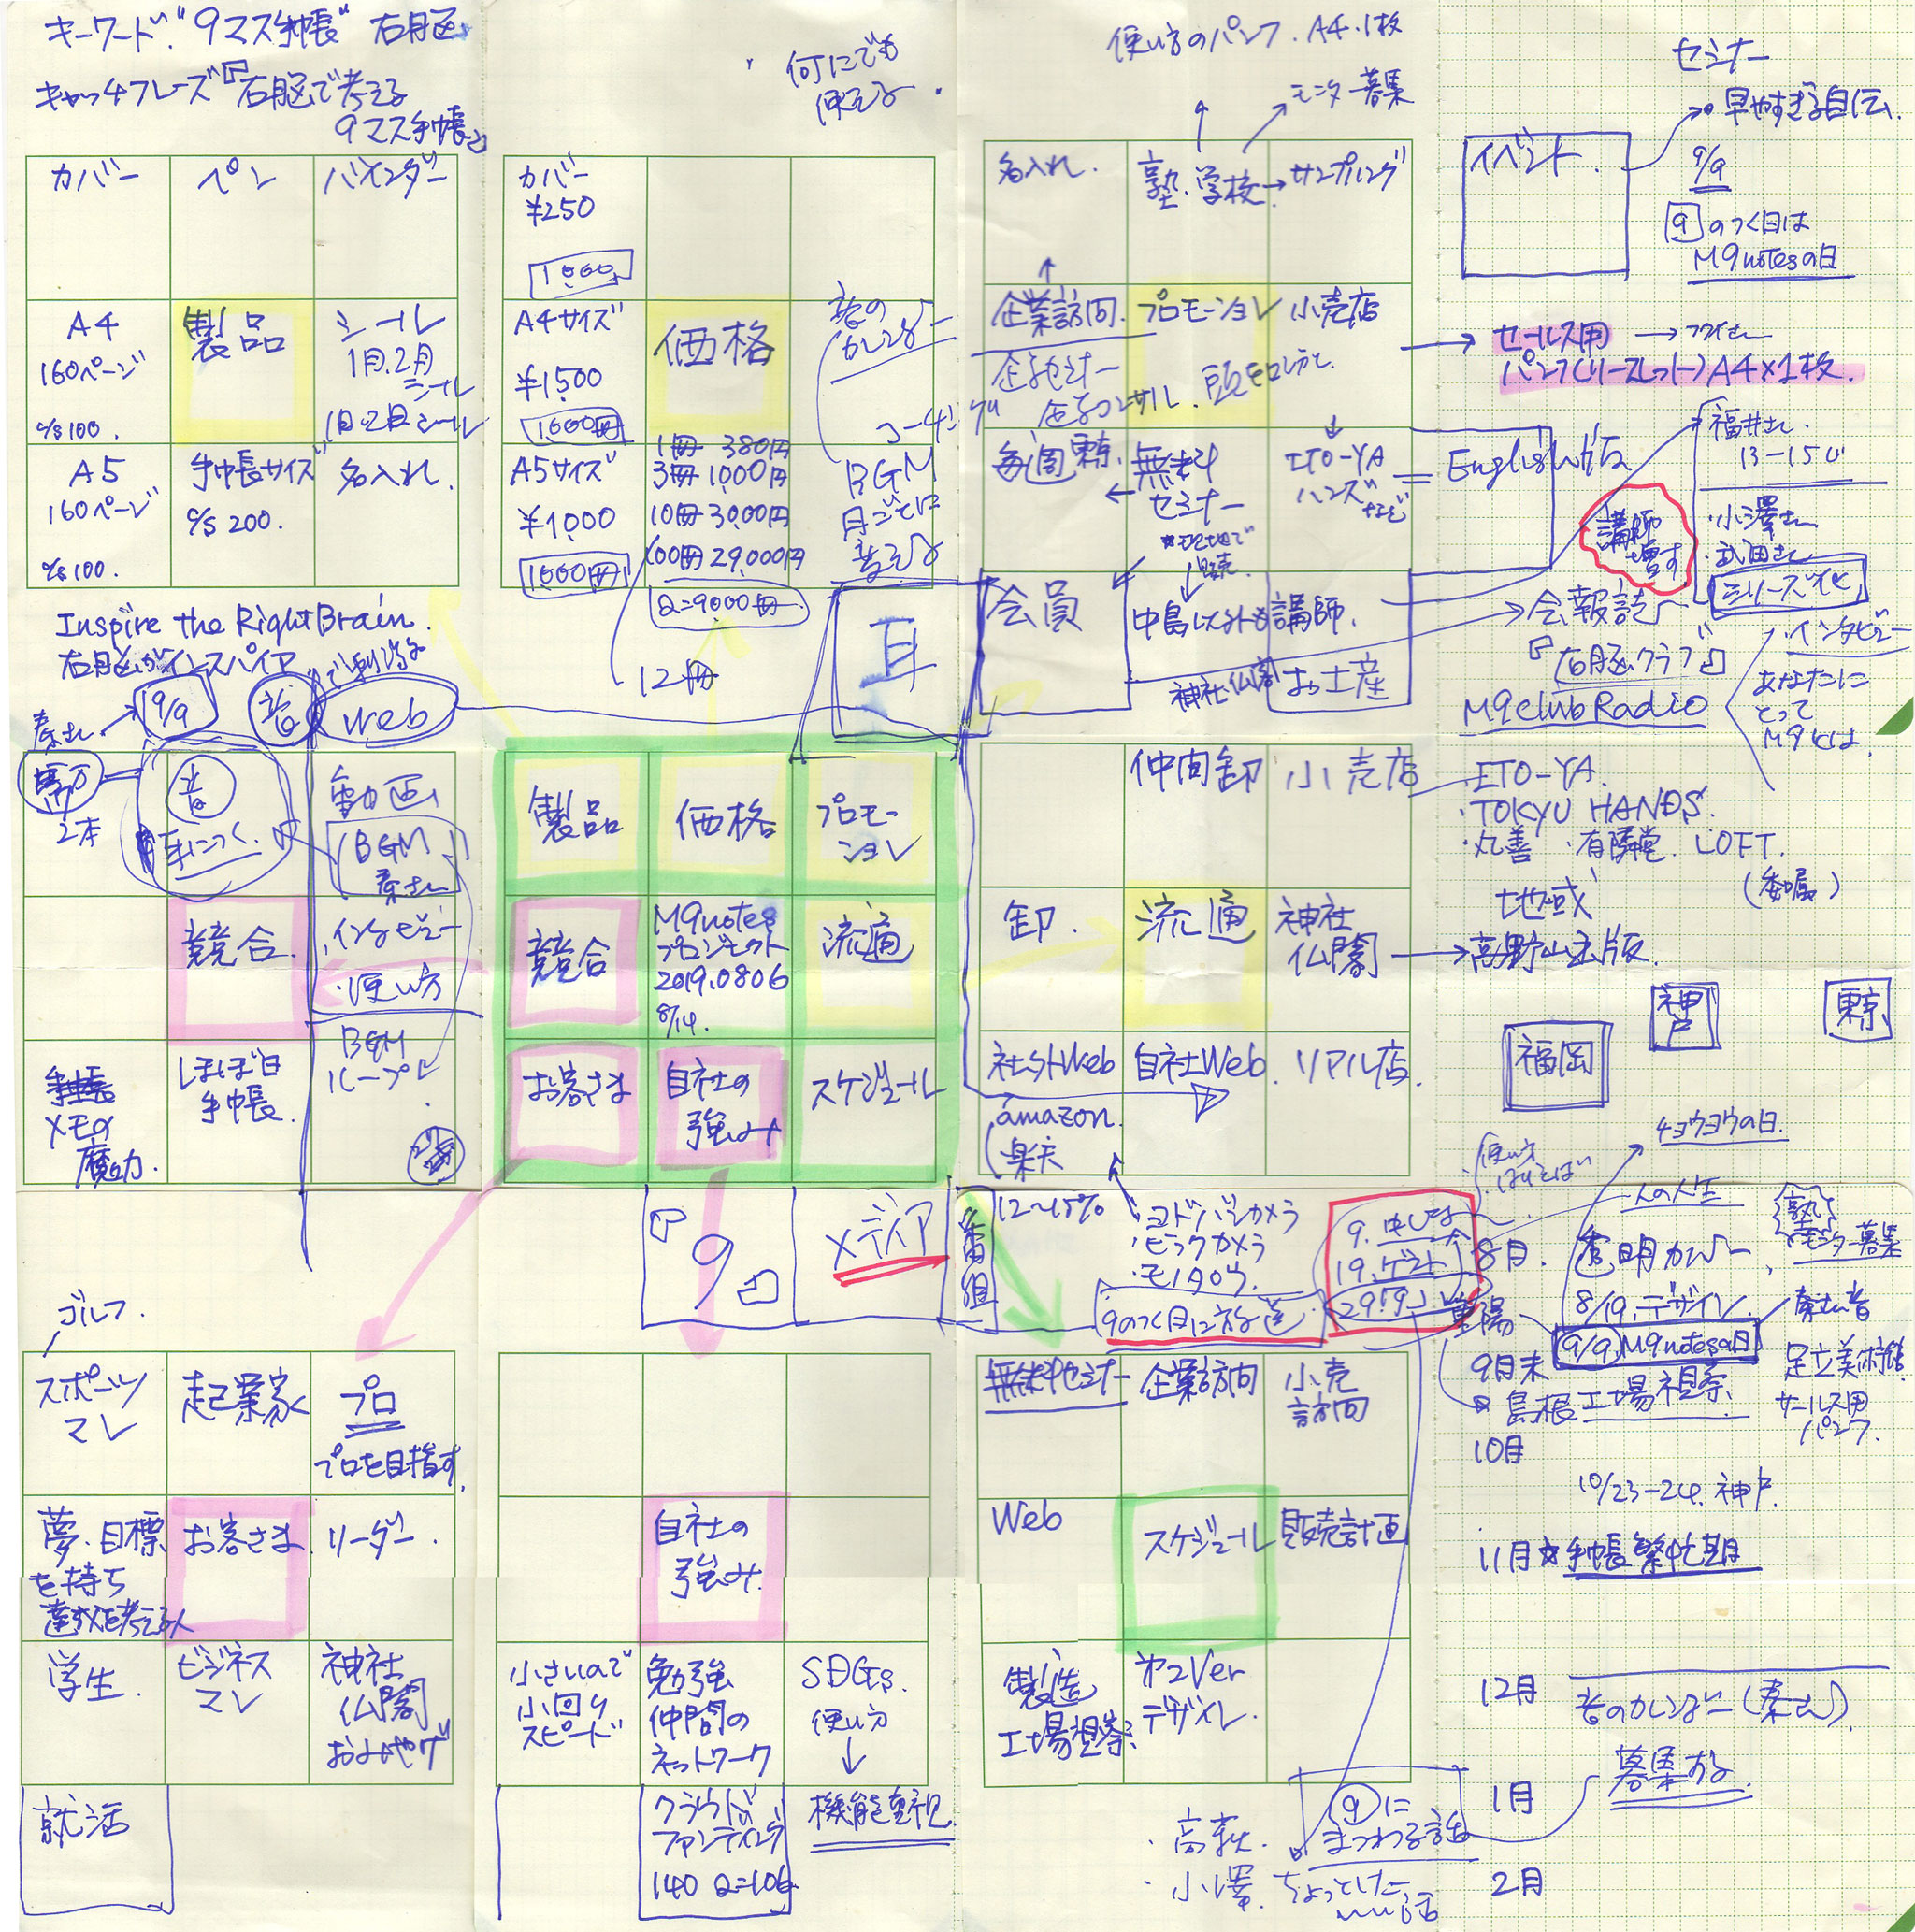 キーワード "9マス手帳" 右脳
キャッチフレーズ『右脳で考える
9マス手帳』
何にでも
使える.
カバー
ペン
バインダー
A4
160ページ
c/s 100.
製品
シール
1月.2月
シール
A5
160ページ
c/s 100.
手帳サイズ
c/s 200.
名入れ.
カバー
¥250
1000
A4サイズ
¥1500
1000冊
価格
音の
カレンダー
A5サイズ
¥1000
1000冊
1冊 380円
3冊 1000円
10冊 3000円
100冊 29,000円
Q=9000冊
12冊
BGM
月ごとに
使い方のパンフ. A4.1枚
モニター募集
名入れ.
塾.学校→サンプリング
企業訪問.
プロモーション
小売店
無料
セミナー
ITO-YA
ハンズ
など
English版
会員
中島以外も
講師.
神社.仏閣
お土産
耳
セミナー
早やすぎる自伝.
イベント.
9/9
9のつく日は
M9notesの日
セールス用
パンフ(リースレット)A4×1枚.
福井さん.
13-15U
小澤さん
武田さん
シリーズ化
講師
増す
会報誌
『右脳クラブ』
M9club Radio
インタビュー
あなたに
とって
M9とは.
Inspire the Right Brain.
右脳がインスパイア
9/9
音
web
2本
音
耳につく.
動画
BGM
秦さん
競合.
インタビュー
・使い方
メモの
魔力.
ほぼ日
手帳.
BGM
ループ
製品
価格
プロモー
ション
競合
M9notes
プロジェクト
2019.0806
8/14.
流通
お客さま
自社の
強み
スケジュール
仲間卸
小売店
卸.
流通
神社
仏閣
社外Web
自社Web.
リアル店.
amazon.
楽天
ITO-YA.
・TOKYU HANDS.
・丸善 ・有隣堂. LOFT.
(委嘱)
地域
高野山出版.
福岡
神戸
東京
チョウヨウの日.
一人の人生
9
メディア
番組
12〜15%
・ヨドバシカメラ
・ビックカメラ
・モノタロウ.
9のつく日に放送
19.ゲスト
8月.
透明カバー
塾
モニター募集
8/19.デザイン.
重陽
9/9 M9notesの日
9月末
島根工場視察.
足立美術館
セールス用
パンフ.
10月
10/23-24. 神戸.
11月★手帳繁忙期
12月
音のカレンダー(秦さん).
募集する
1月
2月
ゴルフ.
スポーツ
マン
起業家
プロ
プロを目指す.
夢.目標
を持ち
お客さま
リーダー.
学生.
ビジネス
マン
神社
仏閣
おみやげ
就活
自社の
強み.
小さいので
小回り
スピード
勉強
仲間の
ネットワーク
SDGs.
使い方
↓
機能重視
クラウド
ファンディング
無料セミナー
企業訪問
小売
訪問
Web
スケジュール
販売計画
製造
工場視察.
第2Ver
デザイン.
・高萩.
・小澤.
9に
まつわる話
ちょっとした